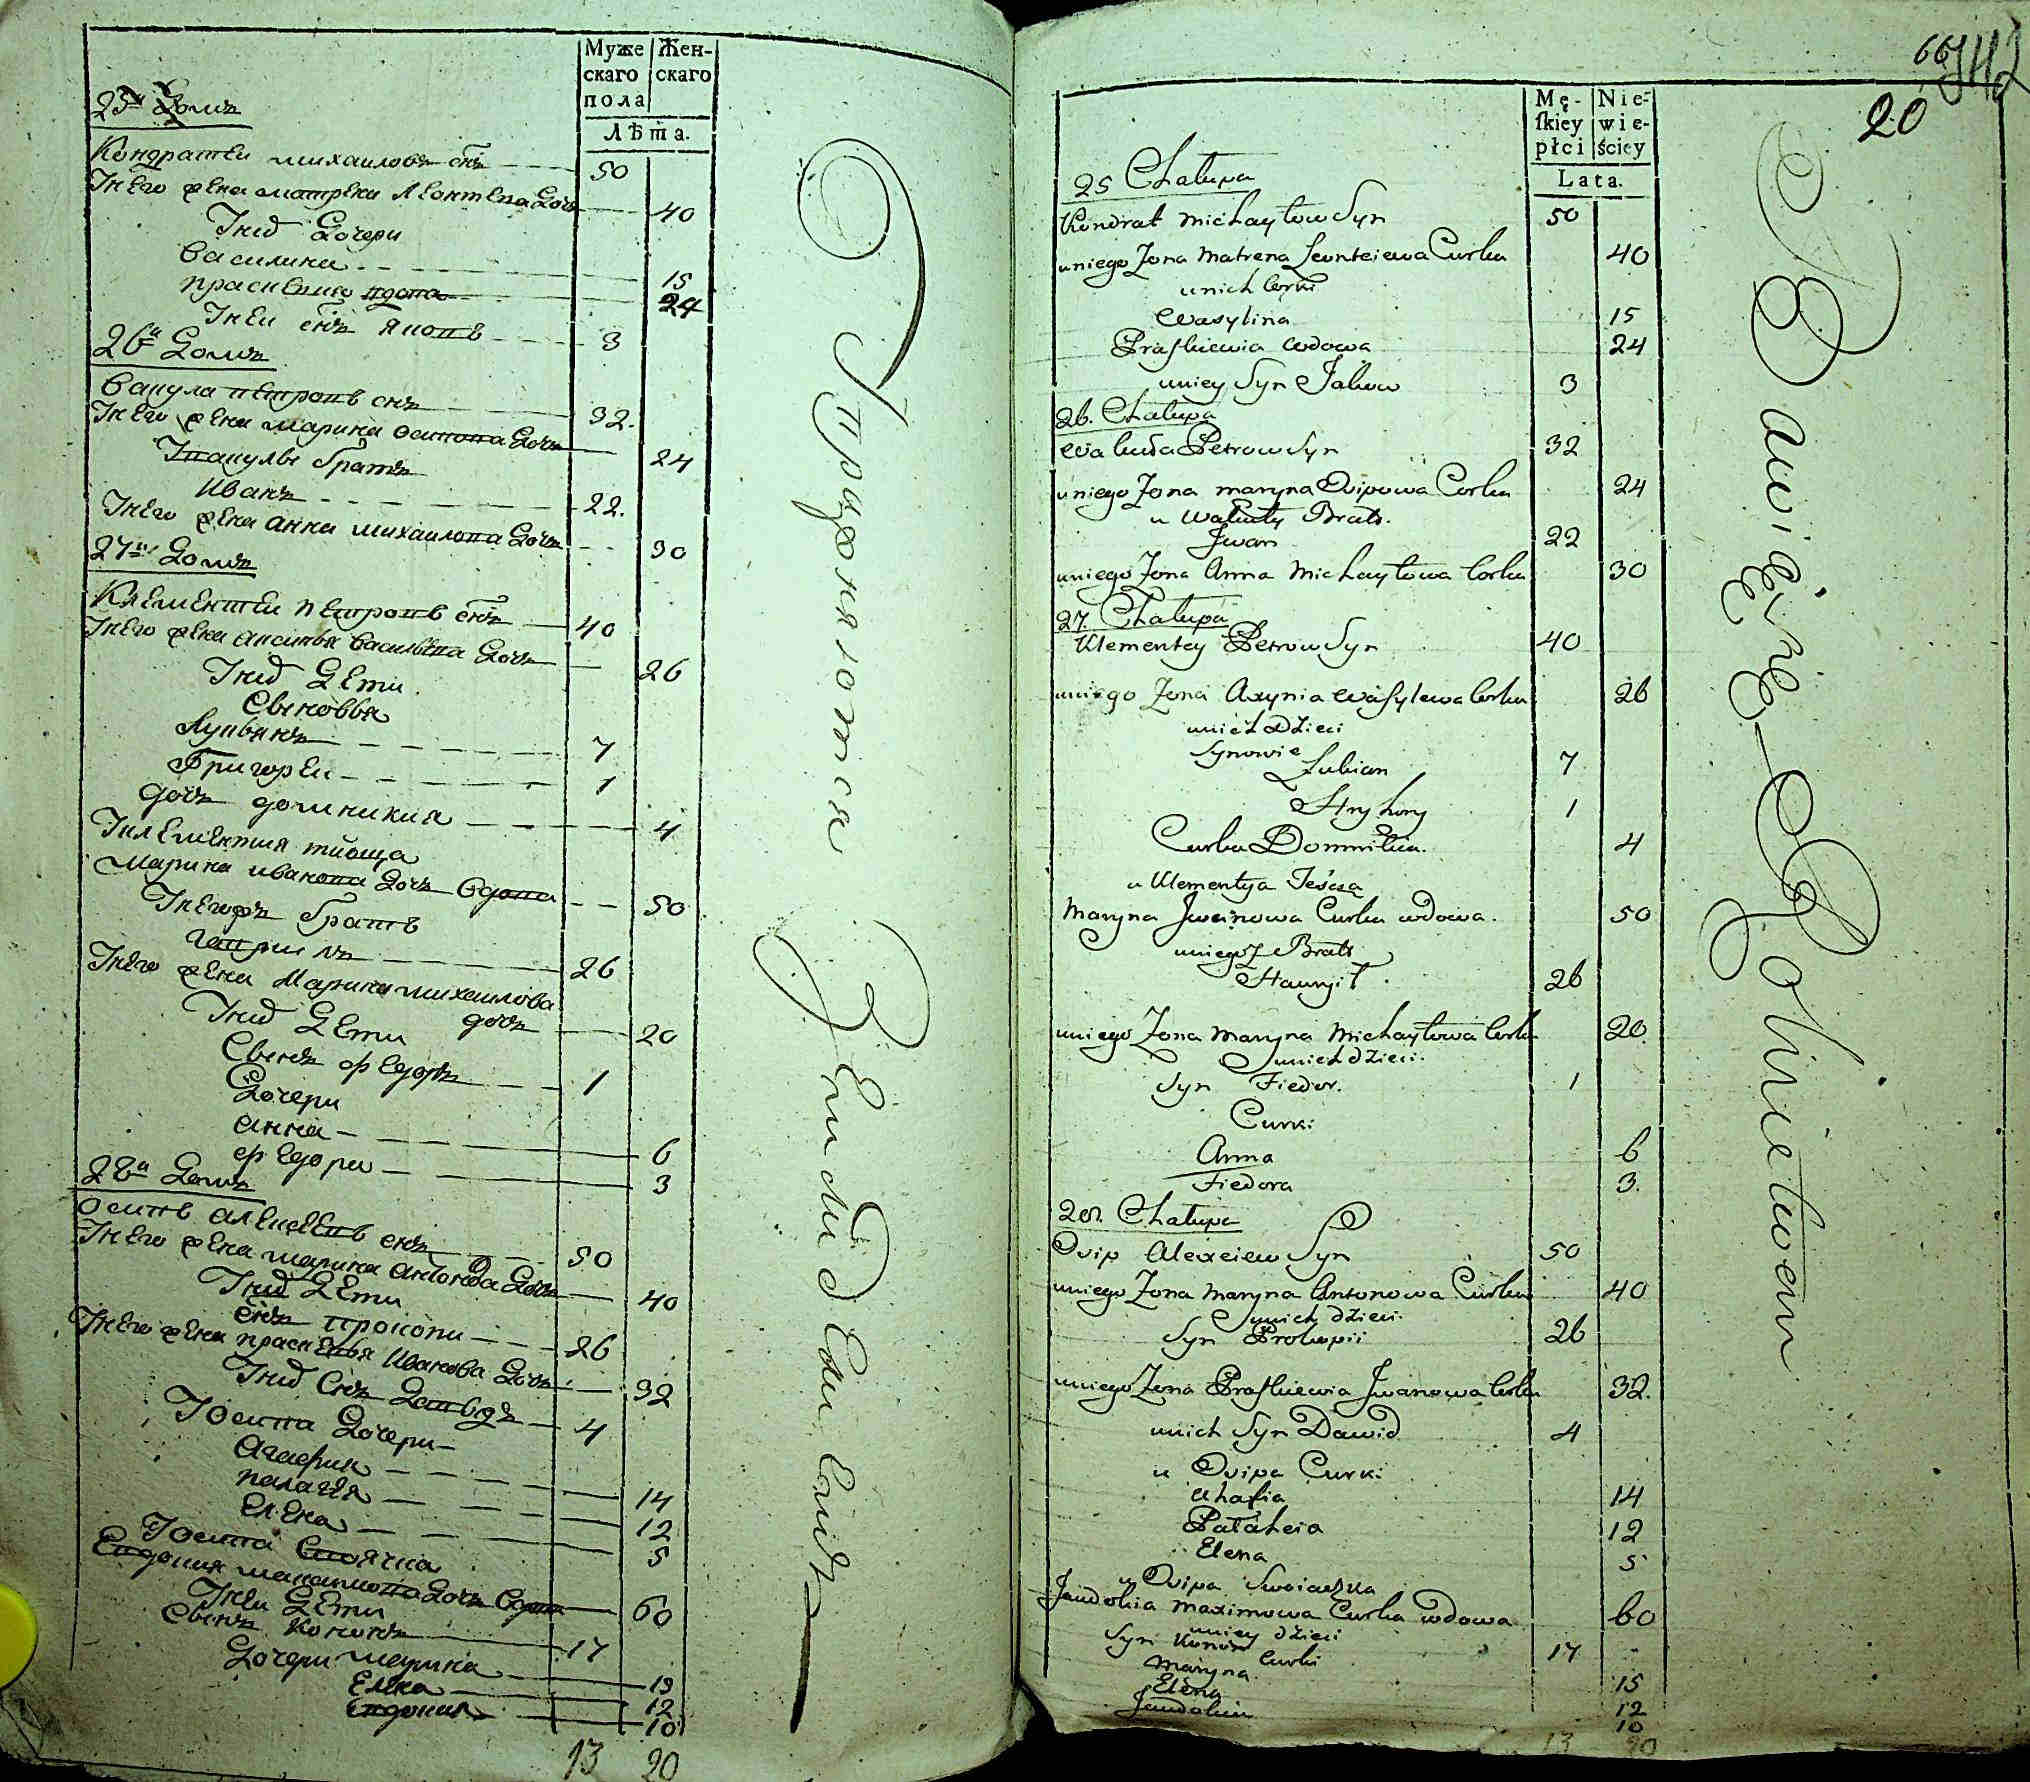 Муже
скаго
пола
Жен-
скаго
Лѣта.
25й Домъ
Кондратеи михаиловъ снъ 50
Унего жена матрена Леонтева Дочь 40
Унихъ Дочери
Василина 15
прасковия вдова 24
Унеи снъ яковъ 3
26й Домъ
Вакула петровъ снъ 32.
Унего жена марина осипова Дочь 24
Увакулы братъ
Иванъ 22.
Унего жена анна михаилова Дочь 30
27й Домъ
Клементеи петровъ снъ 40
Унего жена аксинья Васильева Дочь 26
Унихъ Дети
Сыновья
Лукьянъ 7
Григореи 1
дочь домникия 4
Уклементия тиоща
Марина иванова Дочь вдова 50
Унегожъ братъ
гаврилъ 26
Унего жена Марина михаилова
дочь 20
Унихъ Дети
Сынъ федоръ 1
Дочери
анна 6
федора 3
28й Домъ
осипъ алексеевъ снъ 50
Унего жена марина антонова Дочь 40
Унихъ Дети
снъ прокопи 26
Унего жена прасковья Иванова Дочь 32
Унихъ Снъ Давыдъ 4
Уосипа Дочери
Агафия 14
палагея 12
Елена 5
Уосипа Своячна
Евдокия макаимова Дочь вдова 60
Унеи Дети
Сынъ кононъ 17
Дочери марина 15
Елена 12
Евдокия 10
13 20
Придонятотся Земли Семьями
66 342
20
Mę-
ſkiey
płci
Nie-
wie-
ściey
Lata.
25 Chałupa
Kondrat michayłow Syn 50
uniego Zona Matrena Leonteiewa Curka 40
unich Corki
Wasylina 15
Praſkiewia wdowa 24
uniey Syn Jakow 3
26. Chałupa
Wakuła Petrow Syn 32
uniego Zona maryna Osipowa Corka 24
u Wakuły Brats.
Jwan 22
uniego Zona Anna Michayłowa Corka 30
27. Chałupa
Klementey Petrow Syn 40
uniego Zona Axynia Waſylewa Corka 26
unich Dzieci
Synowie
Łukian 7
Hryhory 1
Curka Domnikia. 4
u Klementya Teścza
Maryna Jwanowa Curka wdowa. 50
uniegoż Brats
Hauryił 26
uniego Zona Maryna Michayłowa Corka 20.
unich dzieci.
Syn Fiedor. 1
Curki
Anna 6
Fiedora 3.
28. Chałupa
Osip Alexeiew Syn 50
uniego Zona Maryna Antonowa Curka 40
unich dzieci.
Syn Prokopii 26
uniego Zona Praſkiewia Jwanowa Corka 32.
unich Syn Dawid 4
u Osipa Curki
Ahafia 14
Pałaheia 12
Elena 5
u Osipa Swoiaczka
Jeudokia Maximowa Curka wdowa 60
uniey dzieci
Syn Konon 17
Curki
Maryna 15
Elena 12
Jeudokia 10
13 20